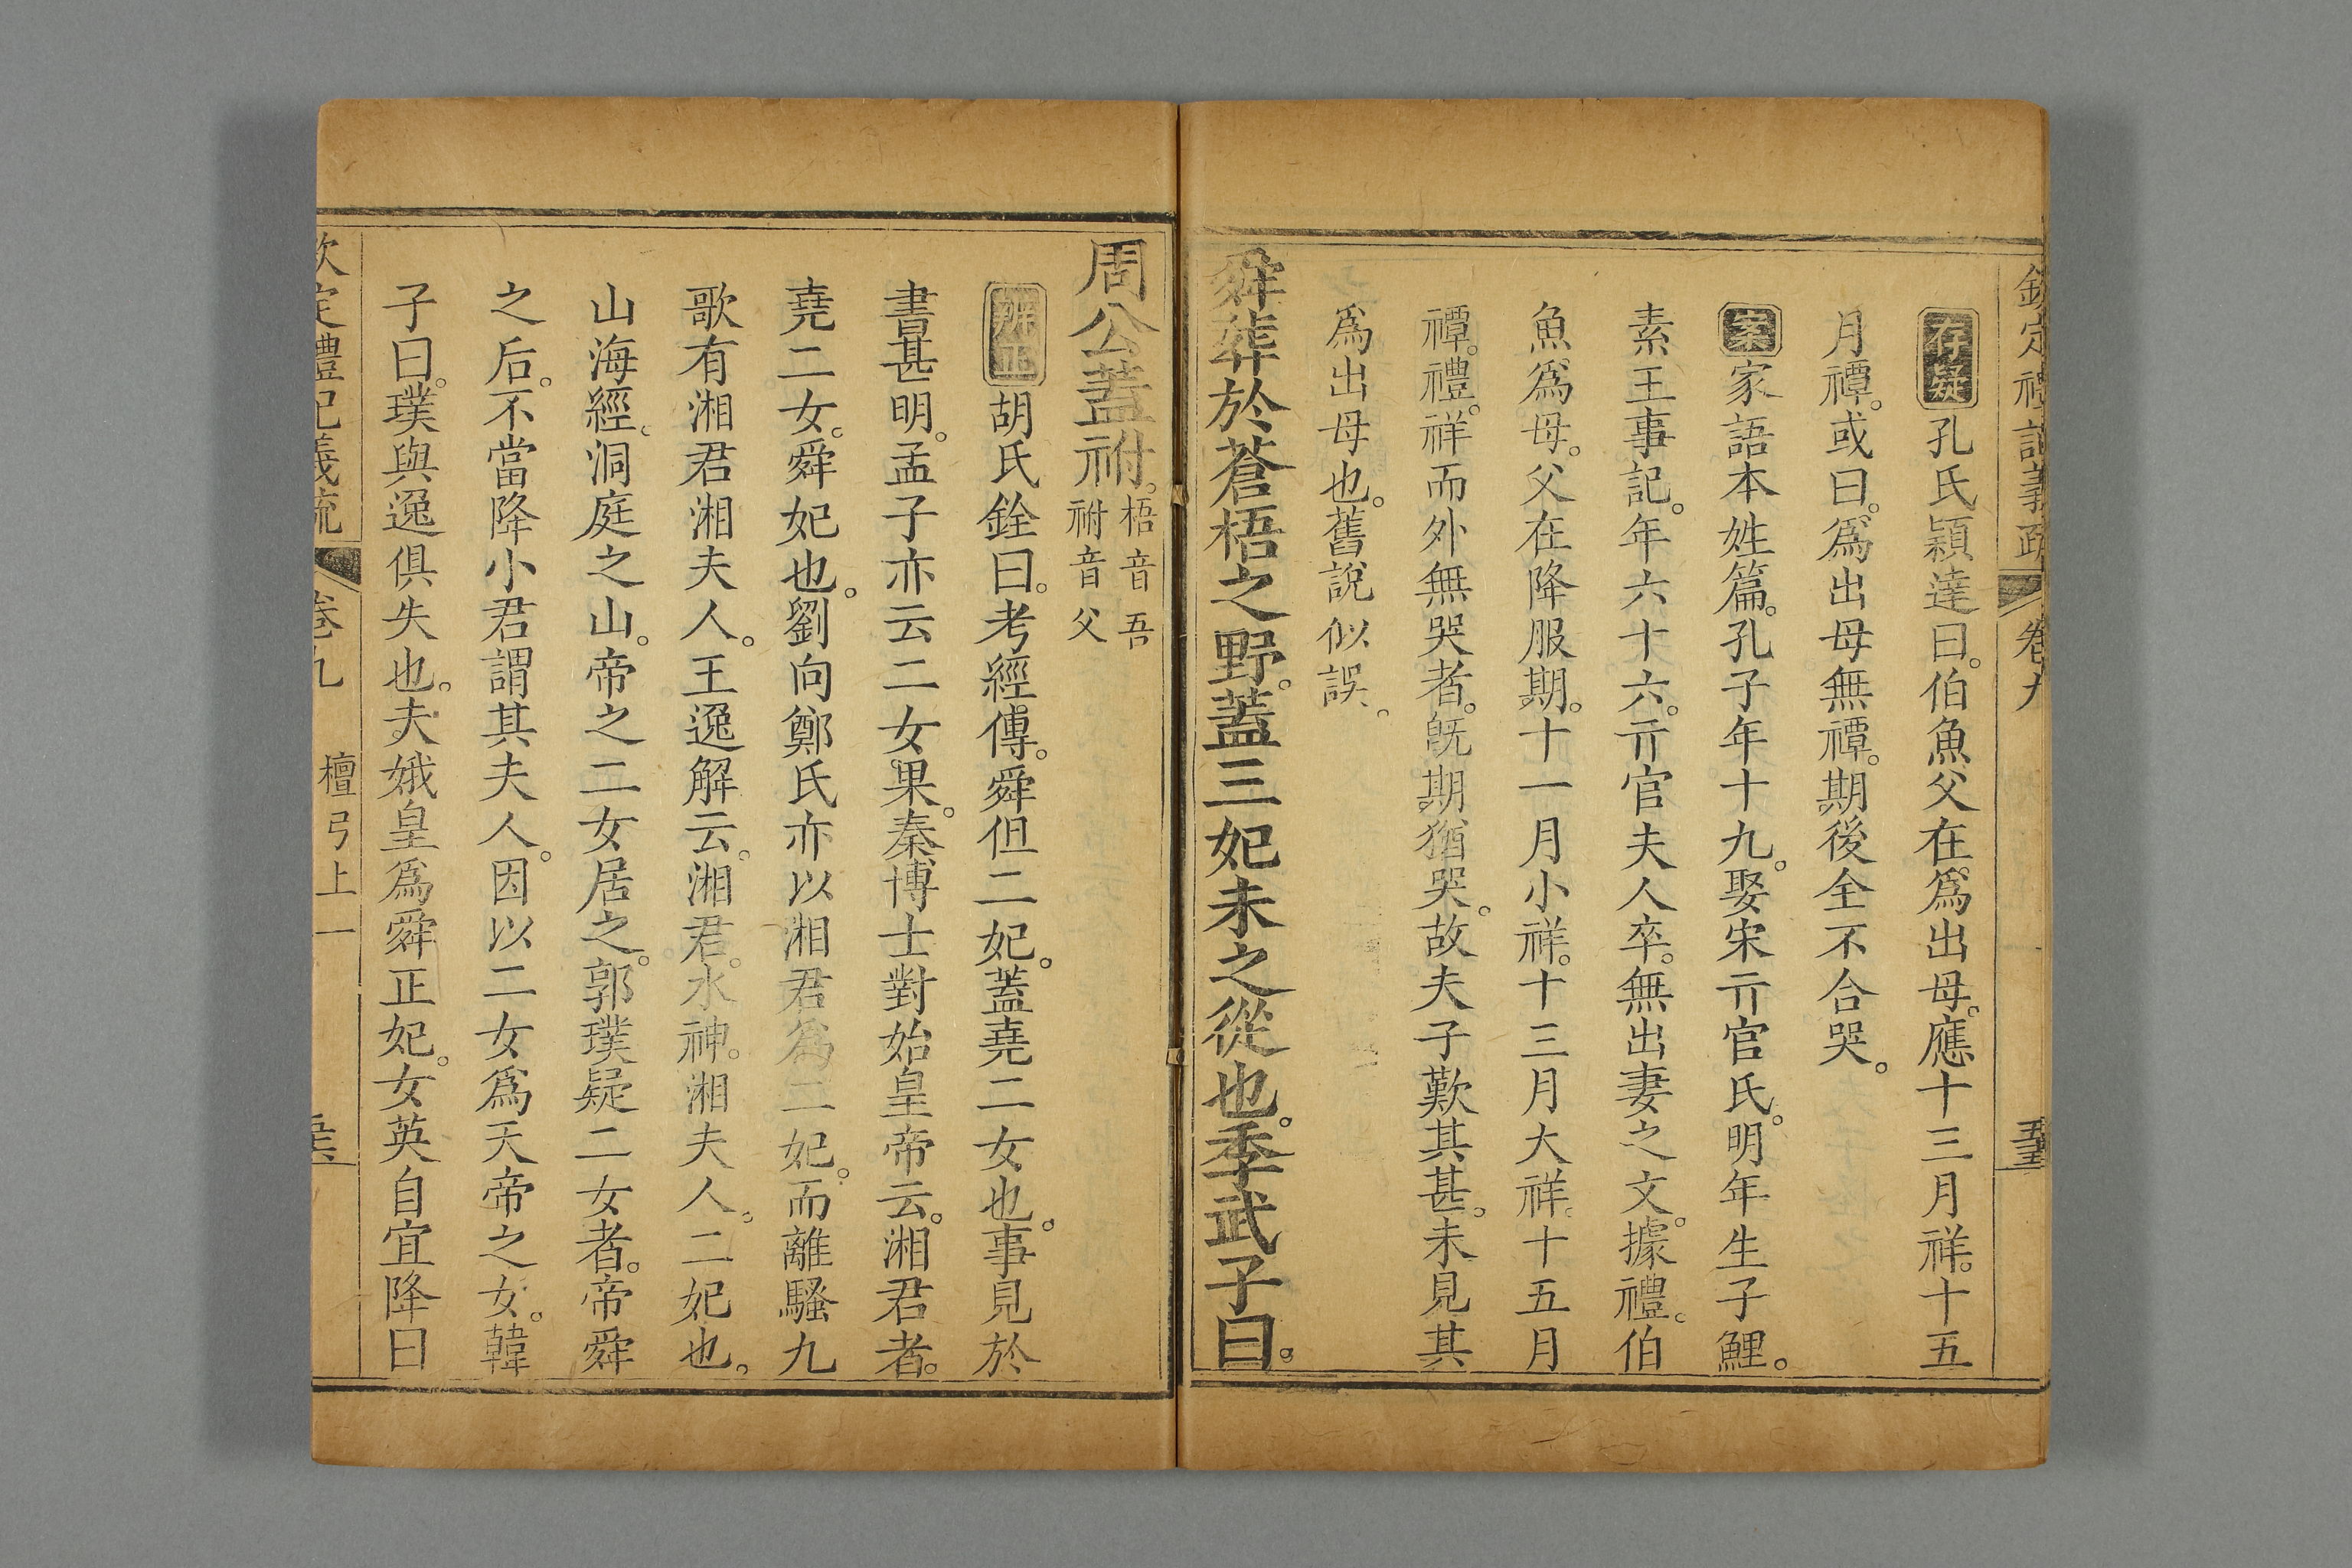 欽定禮記義疏 卷九
存疑孔氏穎達曰。伯魚父在。爲出母。應十三月祥。十五
月禫。或曰。爲出母無禫。期後全不合哭。
案家語本姓篇。孔子年十九。娶宋亓官氏。明年生子鯉。
素王事記。年六十六。亓官夫人卒。無出妻之文。據禮。伯
魚爲母。父在降服期。十一月小祥。十三月大祥。十五月
禫。禮。祥而外無哭者。旣期猶哭。故夫子歎其甚。未見其
爲出母也。舊說似誤。
舜葬於蒼梧之野。蓋三妃未之從也。季武子曰。
周公蓋祔。梧音吾
祔音父
辨正胡氏銓曰。考經傳。舜但二妃。蓋堯二女也。事見於
書甚明。孟子亦云二女果。秦博士對始皇帝云。湘君者。
堯二女。舜妃也。劉向鄭氏亦以湘君爲二妃。而離騷九
歌有湘君湘夫人。王逸解云。湘君。水神。湘夫人。二妃也。
山海經。洞庭之山。帝之二女居之。郭璞疑二女者。帝舜
之后。不當降小君謂其夫人。因以二女爲天帝之女。韓
子曰。璞與逸俱失也。夫娥皇爲舜正妃。女英自宜降曰
欽定禮記義疏 卷九 檀弓上一